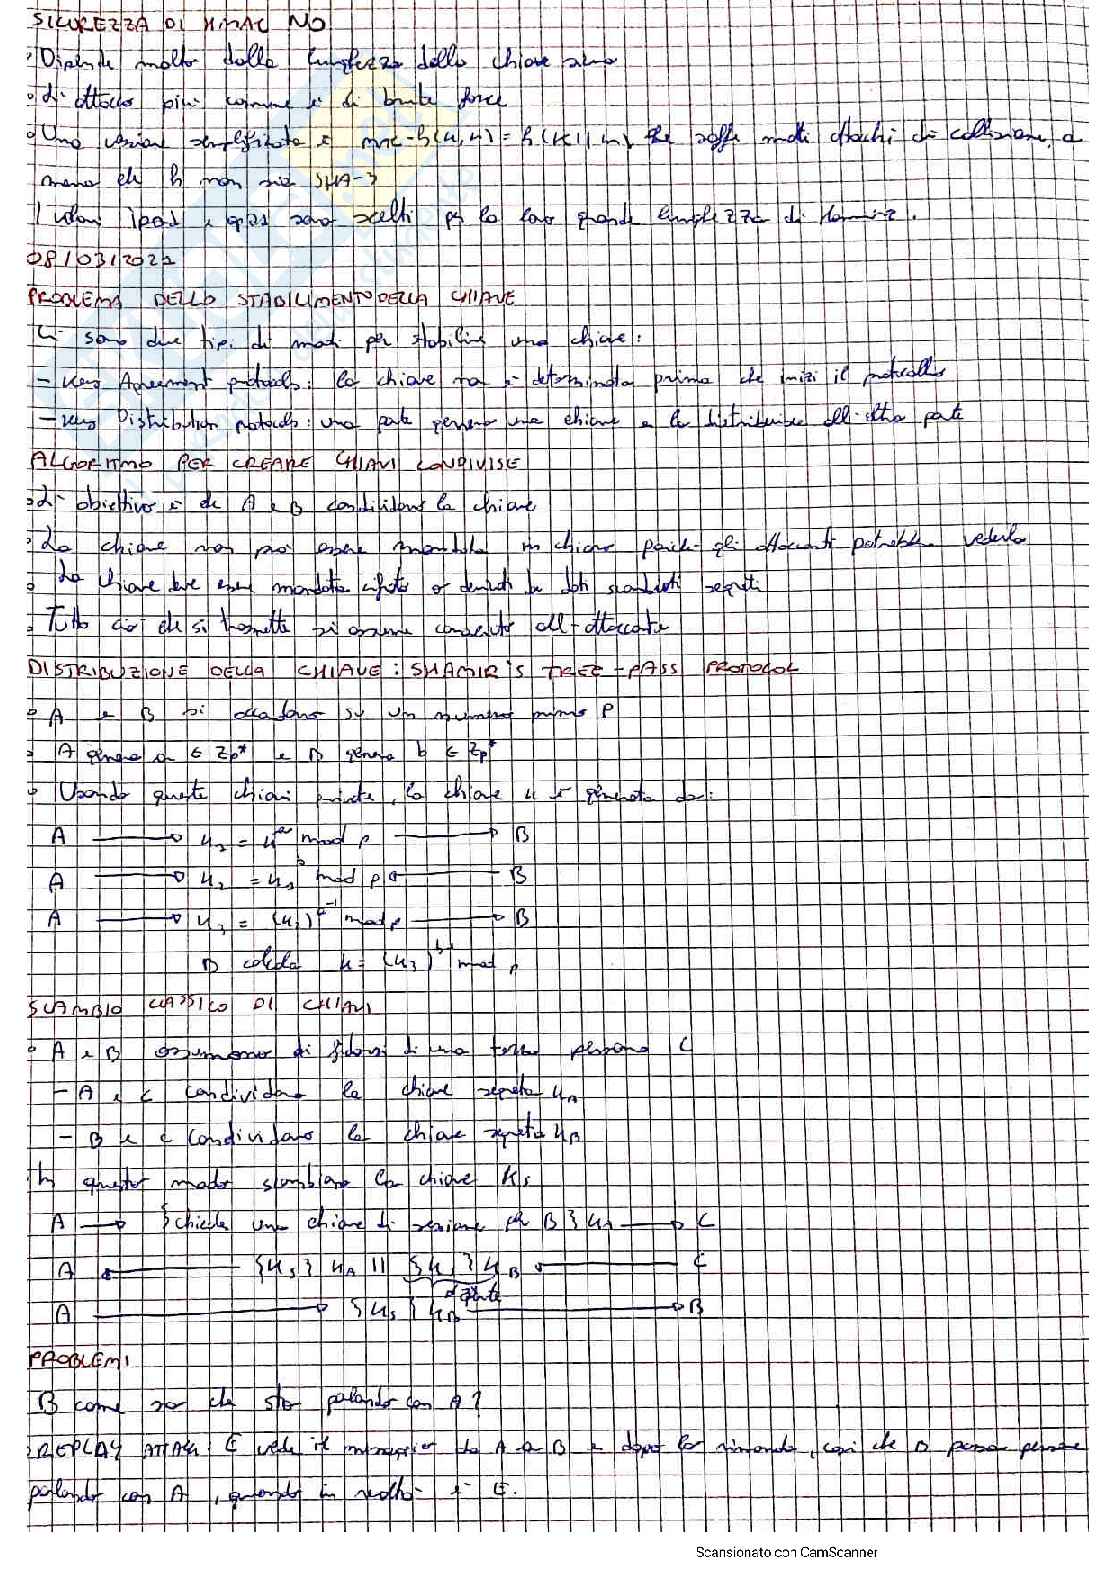 SICUREZZA DI HMAC NO
• Dipende molto dalla lunghezza della chiave
• L' attacco più comune è di brute force
• Una versione semplificata è mac = h(k,m) = h(K||m) che soffre molti attacchi di collisione, a
meno che h non sia SHA-3
I valori ipad e opad sono scelti per la loro grande
08/03/2022
PROBLEMA DELLO STABILIMENTO DELLA CHIAVE
Ci sono due tipi di modi per stabilire una chiave:
- Key Agreement protocols: la chiave non è determinata prima che inizi il protocollo
- Key Distribution protocols: una parte genera una chiave e la distribuisce all'altra parte
ALGORITMO PER CREARE CHIAVI CONDIVISE
• L' obiettivo è che A e B condividano la chiave
• La chiave non può essere mandata in chiaro poiché gli attaccanti potrebbero vederla
• La chiave deve essere mandata cifrata o derivata da dati scambiati segreti
• Tutto ciò che si trasmette si assume conosciuto all'attaccante
DISTRIBUZIONE DELLA CHIAVE: SHAMIR'S TREE-PASS PROTOCOL
• A e B si accordano su un numero primo P
• A genera a ∈ Zp* e B genera b ∈ Zp*
• Usando queste chiavi private, la chiave k è generata da:
A → = k^a mod p → B
A → k2 = k1^b mod p ← B
A → k3 = (k2)^a-1 mod p → B
B calcola k = (k3)^b-1 mod p
SCAMBIO CLASSICO DI CHIAVI
• A e B assumono di fidarsi di una terza persona C
- A e C condividono la chiave segreta KA
- B e C condividono la chiave segreta KB
In questo modo scambiano la chiave Ks
A → {chiede una chiave di sessione per B} KA → C
A ← {Ks} KA || {Ks} KB ← C
A → {Ks} KB → B
PROBLEMI
B come sa che sta parlando con A?
REPLAY ATTACK E vede il messaggio da A a B e dopo lo rimanda, così che B possa pensare
parlando con A, quando in realtà è E.
Scansionato con CamScanner